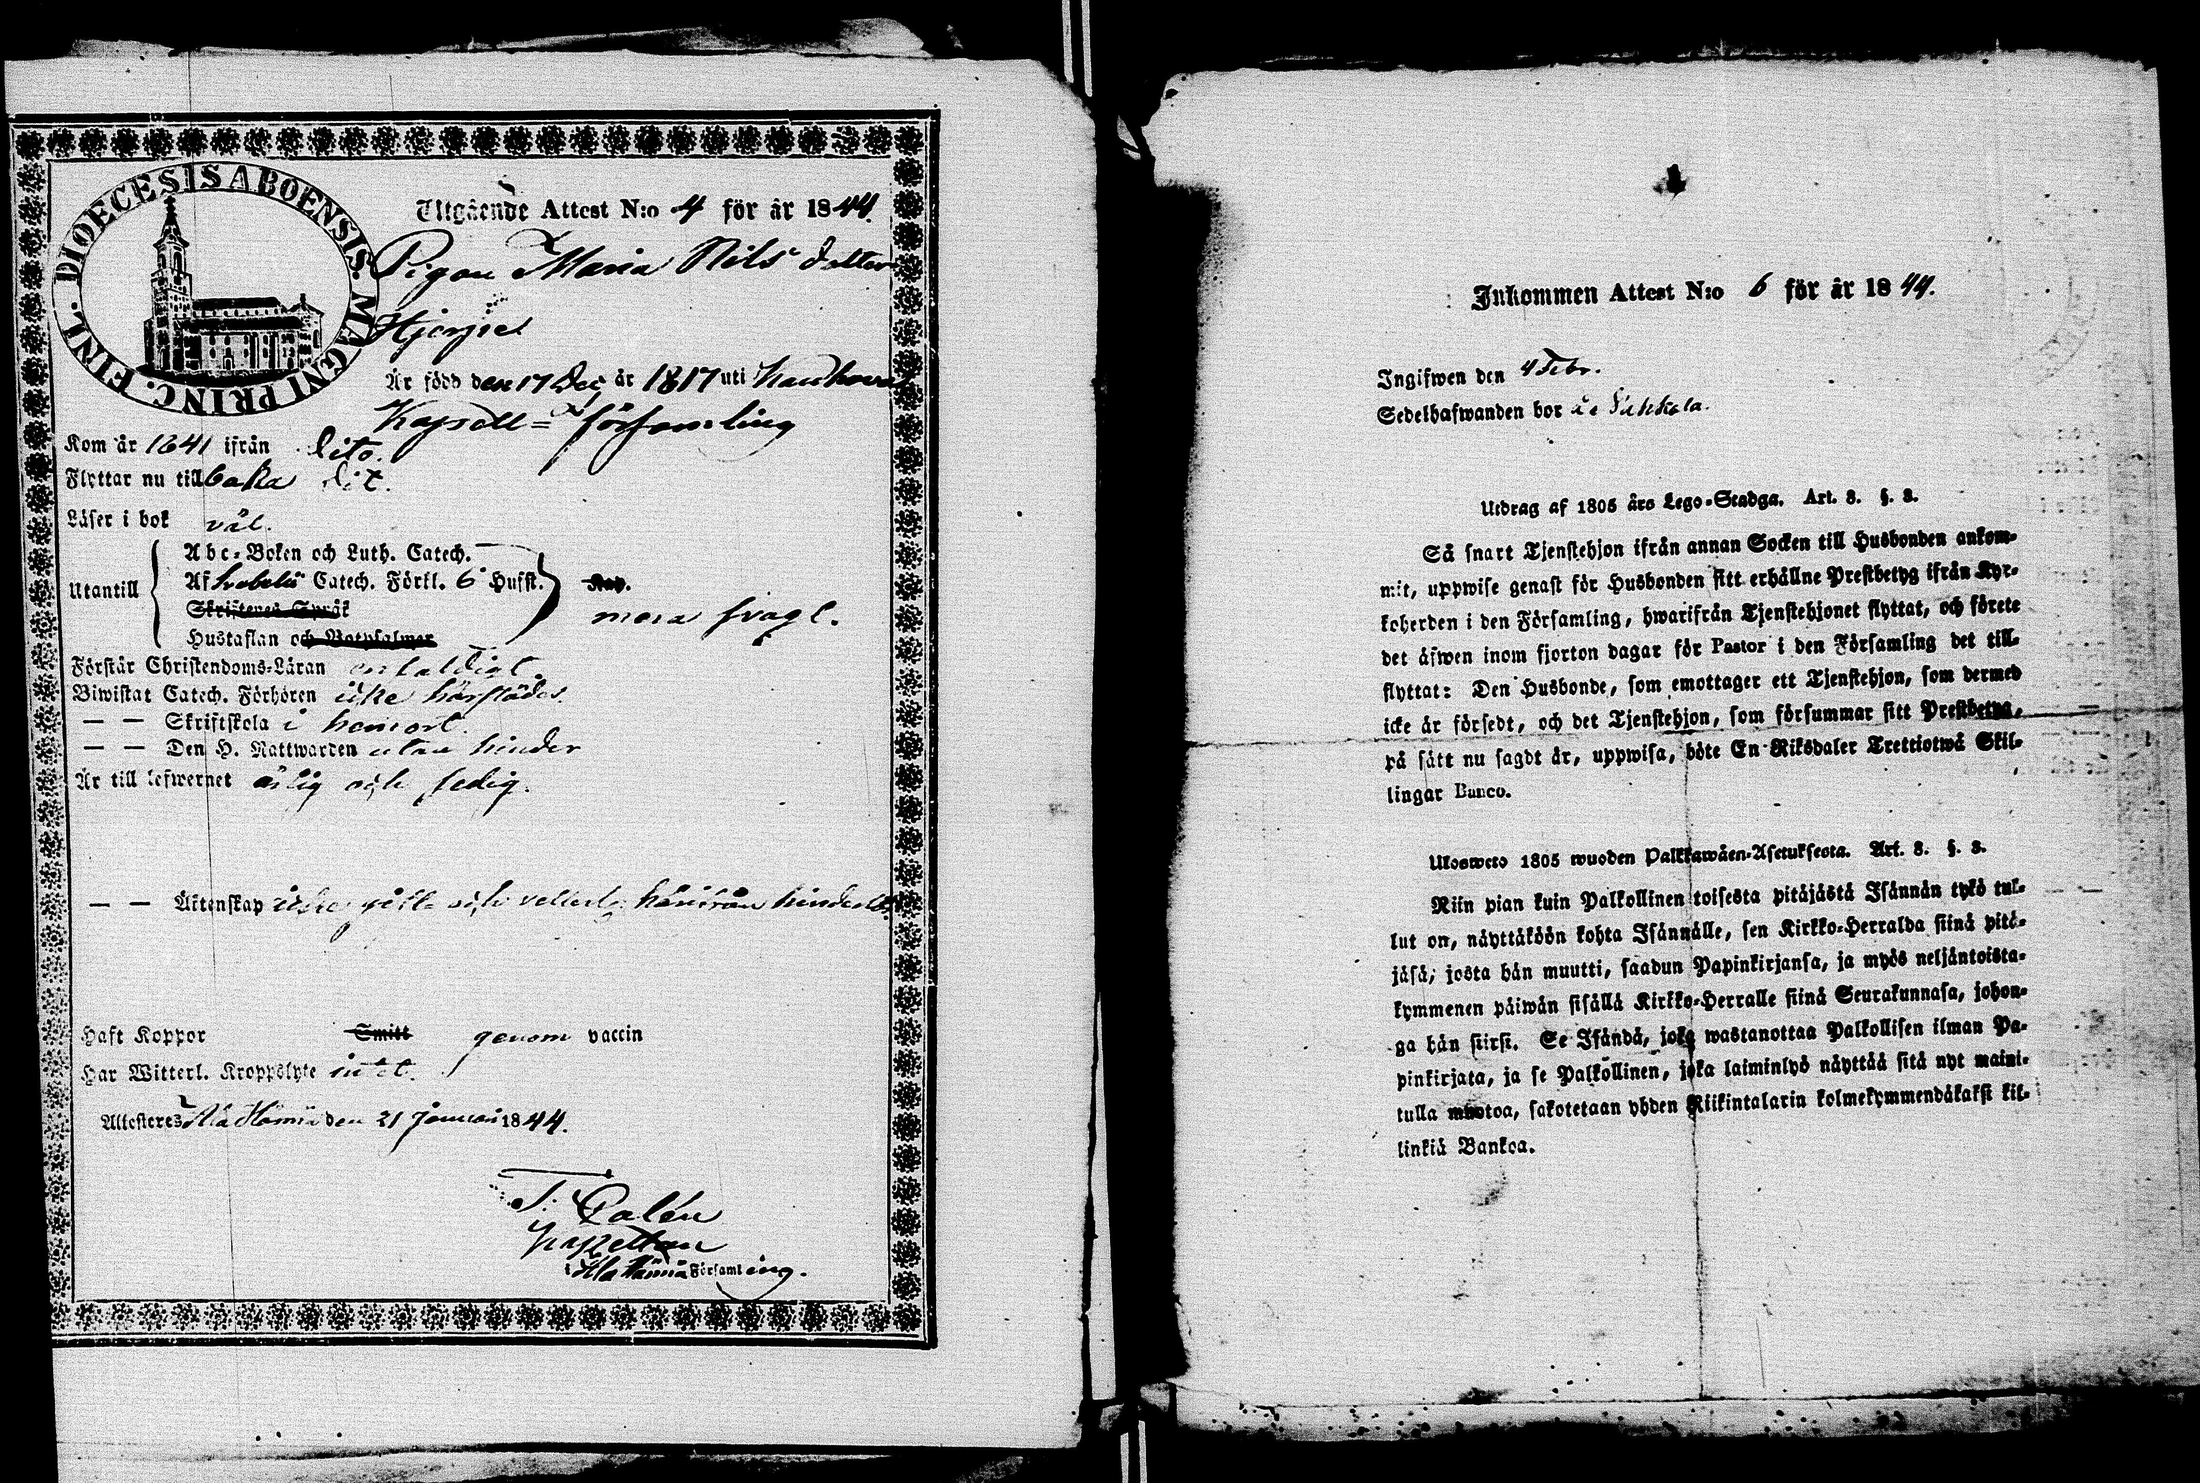 DIOECESIS ABOENSIS. MAGNI PRINC. FINL.
Utgående Attest N:o 4 för år 1844.
Pigan Maria Nils dotter
Hjerpe
Är född den 17 Dec år 1817 uti
Kapell-församling
Kom år 1841 ifrån dito.
Flyttar nu tillbaka dit.
Läser i bok väl.
Utantill
Abc-Boken och Luth. Catech.
Af Svebelii Catech. Förkl. 6 Hufst.
Skriftenes Språk
Hustaflan och Botpsalmer
Kap.
mera svagt.
Förstår Christendoms-Läran enfaldigt.
Biwistat Catech. Förhören icke härstädes.
— — Skriftskola i hemort.
— — Den H. Nattwarden utan hinder
Är till lefwernet ärlig och sedig.
— — Äktenskap icke gift och veterl. härifrån hinderlös
Haft Koppor Smitt genom vaccin
Har Witterl. Kroppslyte intet.
Attesteres Ala Hännä den 21 Januari 1844.
Kapellan
i Ala Hännä Församling.
Inkommen Attest N:o 6 för år 1844.
Ingifwen den 4 Febr.
Sedelhafwanden bor
Utdrag af 1805 års Lego-Stadga. Art. 8. §. 3.
Så snart Tjenstehjon ifrån annan Socken till Husbonden ankom-
mit, uppwise genast för Husbonden sitt erhållne Prestbetyg ifrån Kyr-
koherden i den Församling, hwarifrån Tjenstehjonet flyttat, och förete
det äfwen inom fjorton dagar för Pastor i den Församling det till-
flyttat: Den Husbonde, som emottager ett Tjenstehjon, som dermed
icke är försedt, och det Tjenstehjon, som försummar sitt Prestbetyg,
på sätt nu sagdt är, uppwisa, böte En Riksdaler Trettiotwå Skil-
lingar Banco.
Ulosweto 1805 wuoden Palkkawäen-Asetuksesta. Art. 8. §. 3.
Niin pian kuin Palkollinen toisesta pitäjästä Isännän tykö tul-
lut on, näyttäköön kohta Isännälle, sen Kirkko-Herralda siinä pitä-
jäsä, josta hän muutti, saadun Papinkirjansa, ja myös neljäntoista-
kymmenen päiwän sisällä Kirkko-Herralle siinä Seurakunnasa, johon-
ga hän siirsi. Se Isändä, joka wastanottaa Palkollisen ilman Pa-
pinkirjata, ja se Palkollinen, joka laiminlyö näyttää sitä nyt maini-
tulla muotoa, sakotetaan yhden Riikintalarin kolmekymmendäkaksi kil-
linkiä Bankoa.